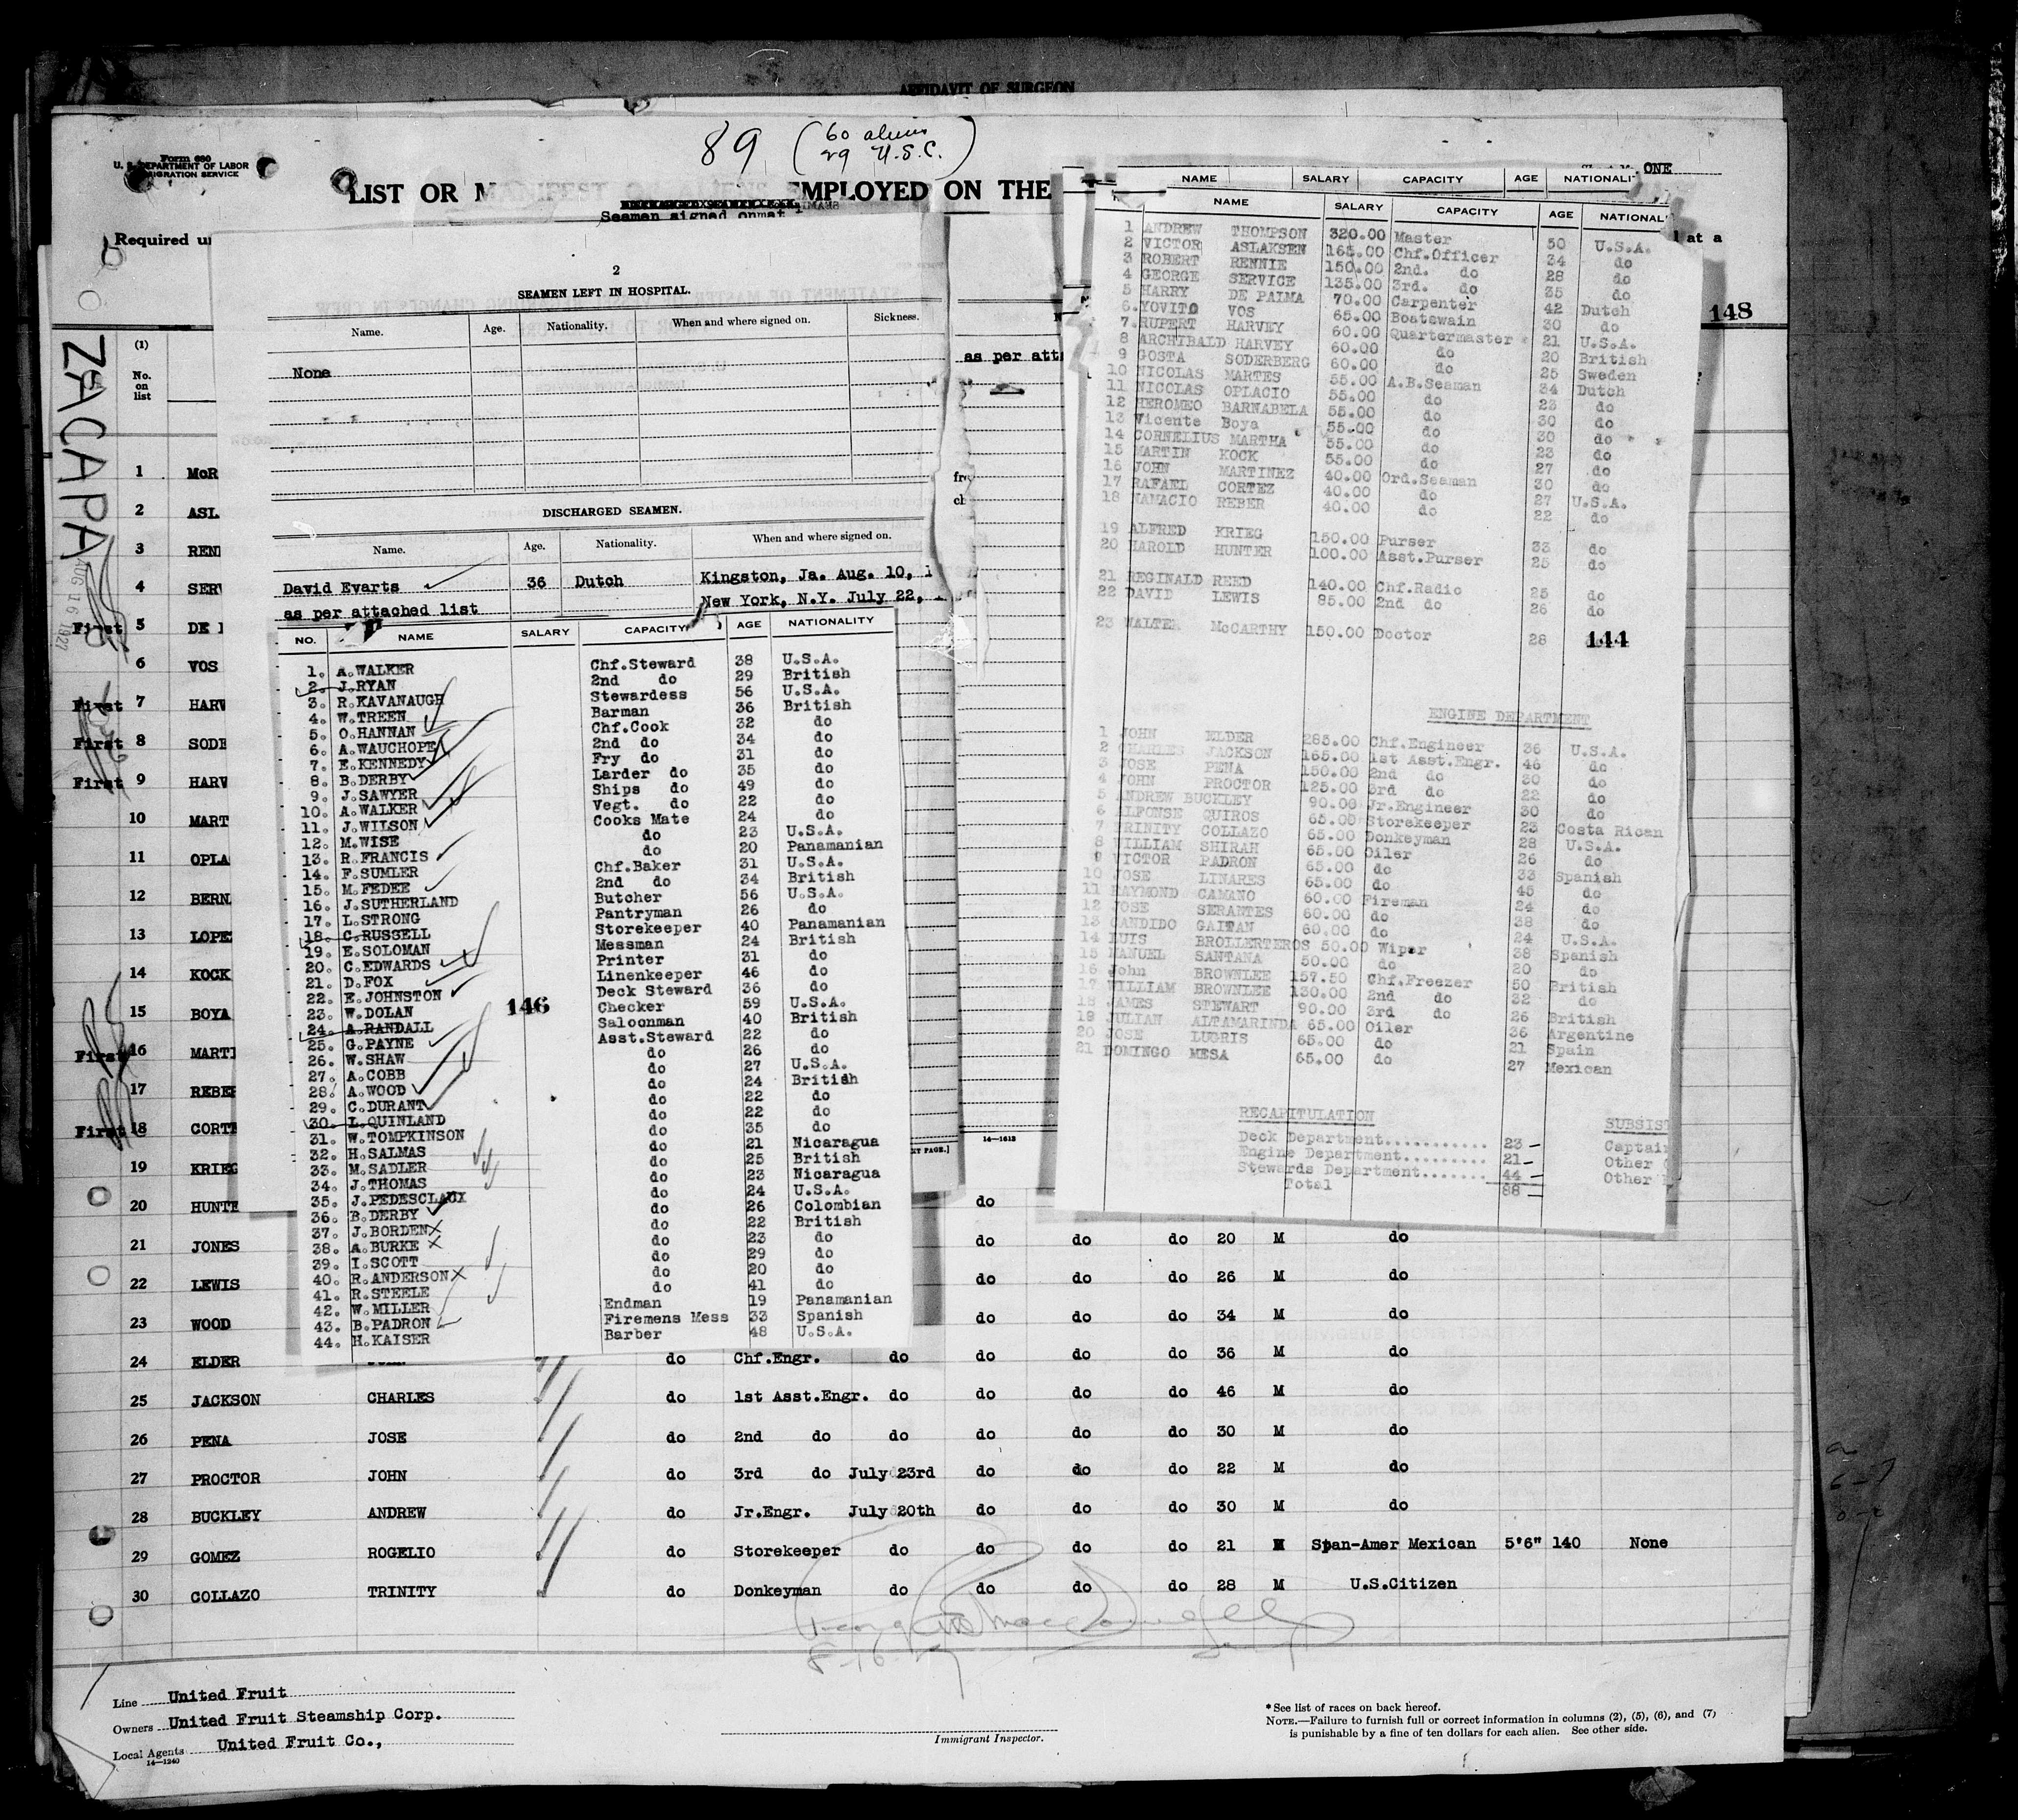 AFFIDAVIT OF SURGEON
89 (60 aliens
29 U.S.C.)
Form 680
U. S. DEPARTMENT OF LABOR
IMMIGRATION SERVICE
ONE
LIST OR MANIFEST OF ALIENS EMPLOYED ON THE
Seamen signed on
Required u
at a
148
ZACAPA
AUG 16 1927
(1)
No.
on
list
2
SEAMEN LEFT IN HOSPITAL.
Name. Age. Nationality. When and where signed on. Sickness.
None
as per att
DISCHARGED SEAMEN.
Name. Age. Nationality. When and where signed on.
David Evarts 36 Dutch Kingston, Ja. Aug. 10, 1
as per attached list New York, N.Y. July 22,
NO. NAME SALARY CAPACITY AGE NATIONALITY
1. A.WALKER Chf.Steward 38 U.S.A.
2. J.RYAN 2nd do 29 British
3. R.KAVANAUGH Stewardess 56 U.S.A.
4. W.TREEN Barman 36 British
5. O.HANNAN Chf.Cook 32 do
6. A.WAUCHOPE 2nd do 34 do
7. E.KENNEDY Fry do 31 do
8. B.DERBY Larder do 35 do
9. J.SAWYER Ships do 49 do
10. A.WALKER Vegt. do 22 do
11. J.WILSON Cooks Mate 24 do
12. M.WISE do 23 U.S.A.
13. R.FRANCIS do 20 Panamanian
14. F.SUMLER Chf.Baker 31 U.S.A.
15. M.FEDEE 2nd do 34 British
16. J.SUTHERLAND Butcher 56 U.S.A.
17. L.STRONG Pantryman 26 do
18. C.RUSSELL Storekeeper 40 Panamanian
19. E.SOLOMAN Messman 24 British
20. C.EDWARDS Printer 31 do
21. D.FOX Linenkeeper 46 do
22. E.JOHNSTON Deck Steward 36 do
23. W.DOLAN Checker 59 U.S.A.
24. A.RANDALL Saloonman 40 British
25. G.PAYNE Asst.Steward 22 do
26. W.SHAW do 26 do
27. A.COBB do 27 U.S.A.
28. A.WOOD do 24 British
29. C.DURANT do 22 do
30. L.QUINLAND do 22 do
31. W.TOMPKINSON do 35 do
32. H.SALMAS do 21 Nicaragua
33. M.SADLER do 25 British
34. J.THOMAS do 23 Nicaragua
35. J.PEDESCLAUX do 24 U.S.A.
36. B.DERBY do 26 Colombian
37. J.BORDEN do 22 British
38. A.BURKE do 23 do
39. I.SCOTT do 29 do
40. R.ANDERSON do 20 do
41. R.STEELE do 41 do
42. W.MILLER Endman 19 Panamanian
43. B.PADRON Firemens Mess 33 Spanish
44. H.KAISER Barber 48 U.S.A.
146
NAME SALARY CAPACITY AGE NATIONALI
NAME SALARY CAPACITY AGE NATIONAL
1 ANDREW THOMPSON 320.00 Master 50 U.S.A.
2 VICTOR ASLAKSEN 165.00 Chf.Officer 34 do
3 ROBERT RENNIE 150.00 2nd. do 28 do
4 GEORGE SERVICE 135.00 3rd. do 35 do
5 HARRY DE PALMA 70.00 Carpenter 42 Dutch
6 YOVITO VOS 65.00 Boatswain 30 do
7 RUPERT HARVEY 60.00 Quartermaster 21 U.S.A.
8 ARCHIBALD HARVEY 60.00 do 20 British
9 GOSTA SODERBERG 60.00 do 25 Sweden
10 NICOLAS MARTES 55.00 A.B.Seaman 34 Dutch
11 NICOLAS OPLACIO 55.00 do 23 do
12 HEROMEO BARNABELA 55.00 do 30 do
13 Vicente Boya 55.00 do 30 do
14 CORNELIUS MARTHA 55.00 do 23 do
15 MARTIN KOCK 55.00 do 27 do
16 JOHN MARTINEZ 40.00 Ord.Seaman 30 do
17 RAFAEL CORTEZ 40.00 do 27 U.S.A.
18 NAMACIO REBER 40.00 do 22 do
19 ALFRED KRIEG 150.00 Purser 33 do
20 HAROLD HUNTER 100.00 Asst.Purser 25 do
21 REGINALD REED 140.00 Chf.Radio 25 do
22 DAVID LEWIS 85.00 2nd do 26 do
23 WALTER McCARTHY 150.00 Doctor 28
144
ENGINE DEPARTMENT
1 JOHN ELDER 285.00 Chf.Engineer 36 U.S.A.
2 CHARLES JACKSON 165.00 1st Asst.Engr. 46 do
3 JOSE PENA 150.00 2nd do 30 do
4 JOHN PROCTOR 125.00 3rd do 22 do
5 ANDREW BUCKLEY 90.00 Jr.Engineer 30 do
6 ALFONSE QUIROS 65.00 Storekeeper 23 Costa Rican
7 TRINITY COLLAZO 65.00 Donkeyman 28 U.S.A.
8 WILLIAM SHIRAH 65.00 Oiler 26 do
9 VICTOR PADRON 65.00 do 33 Spanish
10 JOSE LINARES 65.00 do 45 do
11 RAYMOND CAMANO 60.00 Fireman 24 do
12 JOSE SERANTES 60.00 do 38 do
13 CANDIDO GAITAN 60.00 do 24 U.S.A.
14 LUIS BROLLERTEROS 50.00 Wiper 38 Spanish
15 MANUEL SANTANA 50.00 do 20 do
16 John BROWNLEE 157.50 Chf.Freezer 50 British
17 WILLIAM BROWNLEE 130.00 2nd do 32 do
18 JAMES STEWART 90.00 3rd do 26 British
19 JULIAN ALTAMARINDA 65.00 Oiler 36 Argentine
20 JOSE LUGRIS 65.00 do 21 Spain
21 DOMINGO MESA 65.00 do 27 Mexican
RECAPITULATION SUBSIST
Deck Department........... 23 Captai
Engine Department......... 21 Other
Stewards Department....... 44 Other
Total 88
14—1612
XT PAGE.]
1 McR
2 ASL
3 REN
4 SERV
First 5 DE
6 VOS
First 7 HARV
First 8 SODE
First 9 HARV
10 MART
11 OPLA
12 BERN
13 LOPE
14 KOCK
15 BOYA
First 16 MARTI
17 REBER
First 18 CORTE
19 KRIEG
20 HUNTE do
21 JONES do do do 20 M do
22 LEWIS do do do 26 M do
23 WOOD do do do 34 M do
24 ELDER do Chf.Engr. do do do do 36 M do
25 JACKSON CHARLES do 1st Asst.Engr. do do do do 46 M do
26 PENA JOSE do 2nd do do do do do 30 M do
27 PROCTOR JOHN do 3rd do July 23rd do do do 22 M do
28 BUCKLEY ANDREW do Jr.Engr. July 20th do do do 30 M do
29 GOMEZ ROGELIO do Storekeeper do do do do 21 M Span-Amer Mexican 5'6" 140 None
30 COLLAZO TRINITY do Donkeyman do do do do 28 M U.S.Citizen
Line United Fruit
Owners United Fruit Steamship Corp.
Local Agents United Fruit Co.,
14—1240
Immigrant Inspector.
* See list of races on back hereof.
NOTE.—Failure to furnish full or correct information in columns (2), (5), (6), and (7)
is punishable by a fine of ten dollars for each alien. See other side.